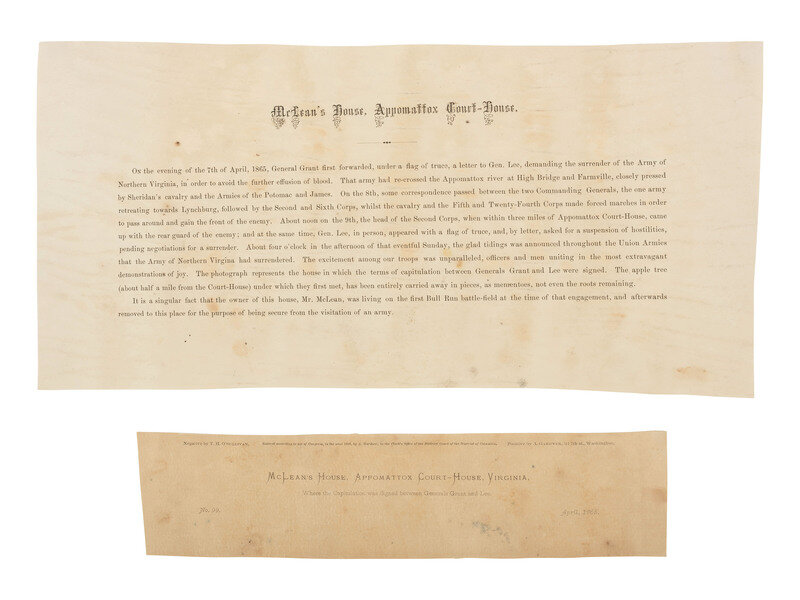 McLean's House, Appomattox Court-House.
On the evening of the 7th of April, 1865, General Grant first forwarded, under a flag of truce, a letter to Gen. Lee, demanding the surrender of the Army of
Northern Virginia, in order to avoid the further effusion of blood. That army had re-crossed the Appomattox river at High Bridge and Farmville, closely pressed
by Sheridan's cavalry and the Armies of the Potomac and James. On the 8th, some correspondence passed between the two Commanding Generals, the one army
retreating towards Lynchburg, followed by the Second and Sixth Corps, whilst the cavalry and the Fifth and Twenty-Fourth Corps made forced marches in order
to pass around and gain the front of the enemy. About noon on the 9th, the head of the Second Corps, when within three miles of Appomattox Court-House, came
up with the rear guard of the enemy; and at the same time, Gen. Lee, in person, appeared with a flag of truce, and, by letter, asked for a suspension of hostilities,
pending negotiations for a surrender. About four o'clock in the afternoon of that eventful Sunday, the glad tidings was announced throughout the Union Armies
that the Army of Northern Virgina had surrendered. The excitement among our troops was unparalleled, officers and men uniting in the most extravagant
demonstrations of joy. The photograph represents the house in which the terms of capitulation between Generals Grant and Lee were signed. The apple tree
(about half a mile from the Court-House) under which they first met, has been entirely carried away in pieces, as mementoes, not even the roots remaining.
It is a singular fact that the owner of this house, Mr. McLean, was living on the first Bull Run battle-field at the time of that engagement, and afterwards
removed to this place for the purpose of being secure from the visitation of an army.
Negative by T. H. O'Sullivan. Entered according to act of Congress, in the year 1866, by A. Gardner, in the Clerk's Office of the District Court of the District of Columbia. Positive by A. Gardner, 511 7th st., Washington.
McLean's House, Appomattox Court-House, Virginia.
Where the Capitulation was Signed between Generals Grant and Lee.
No. 99. April, 1865.